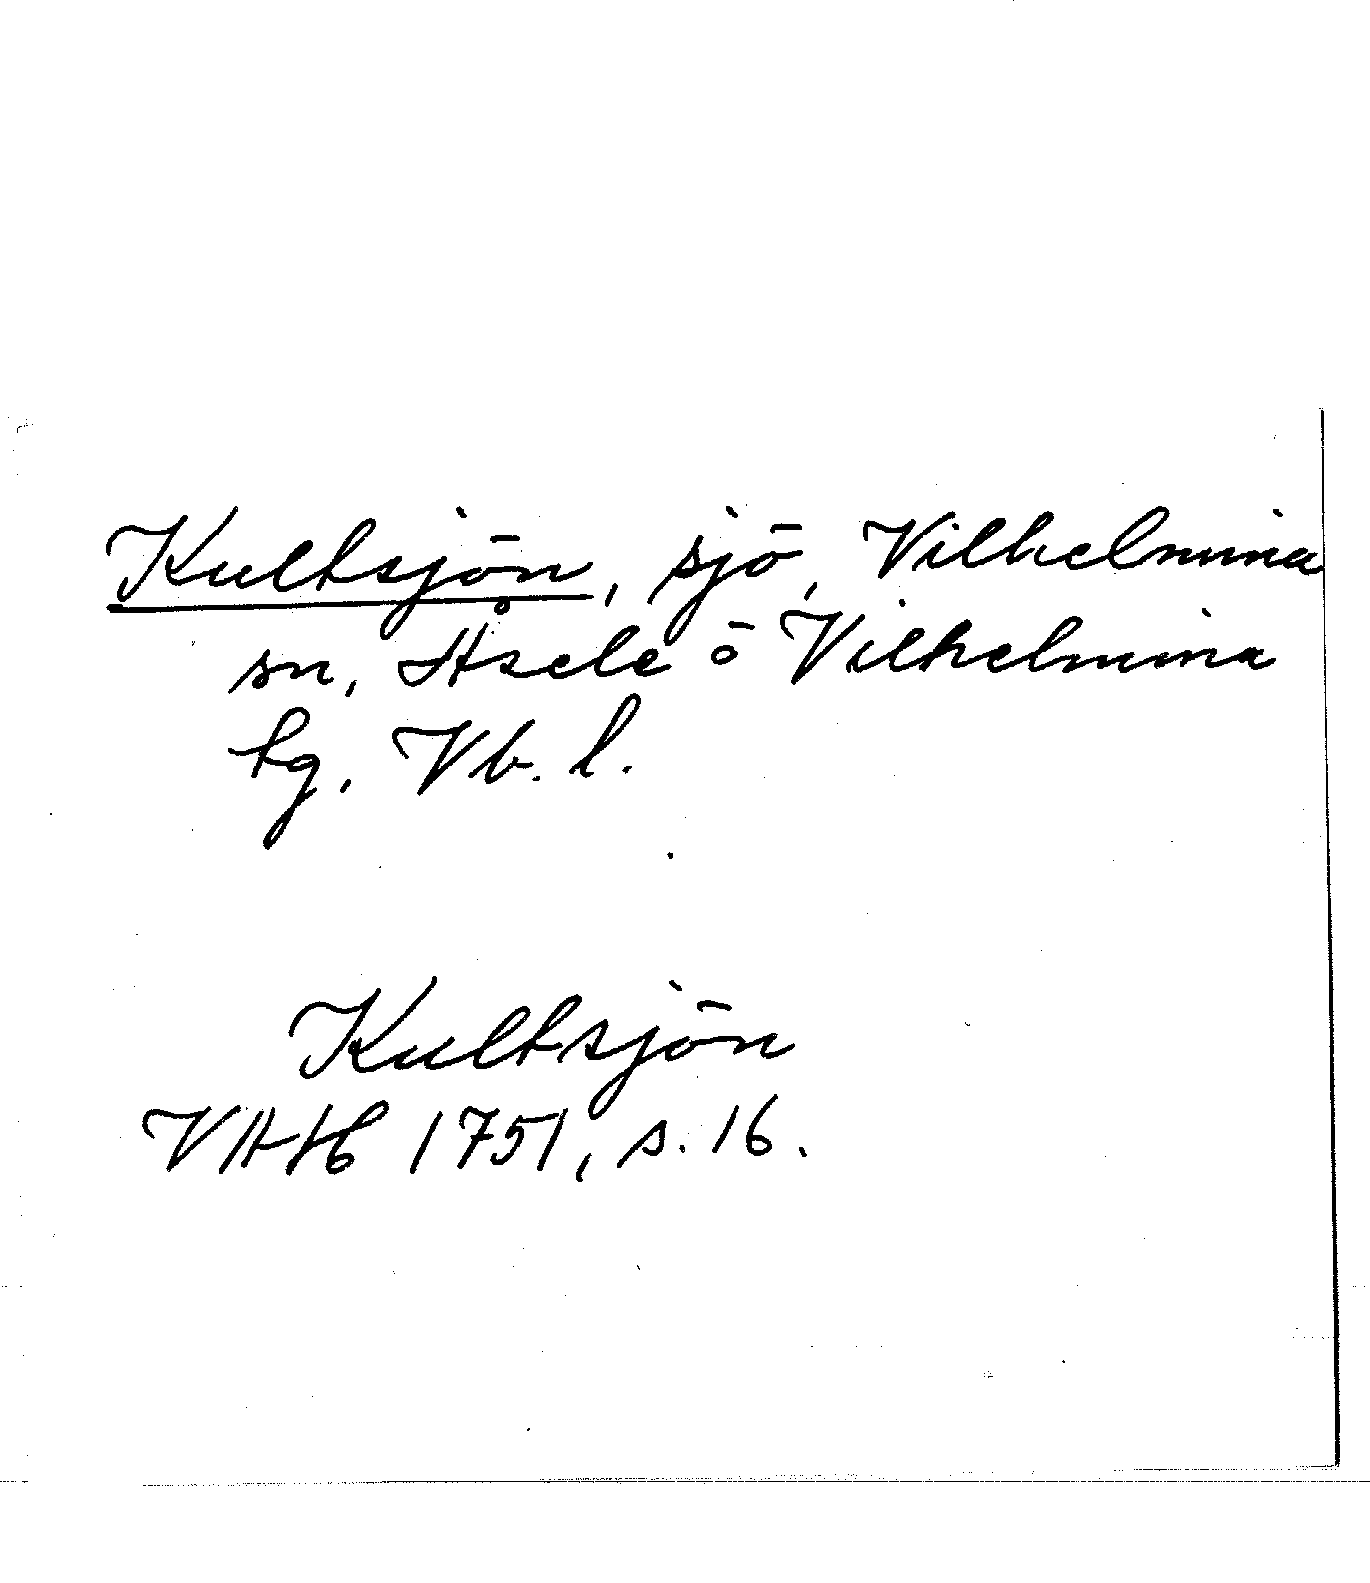 Kultsjön, sjö, Vilhelmina
sn, Åsele o Vilhelmina
tg. Vb. l.
Kultsjön
VAH 1751, s. 16.